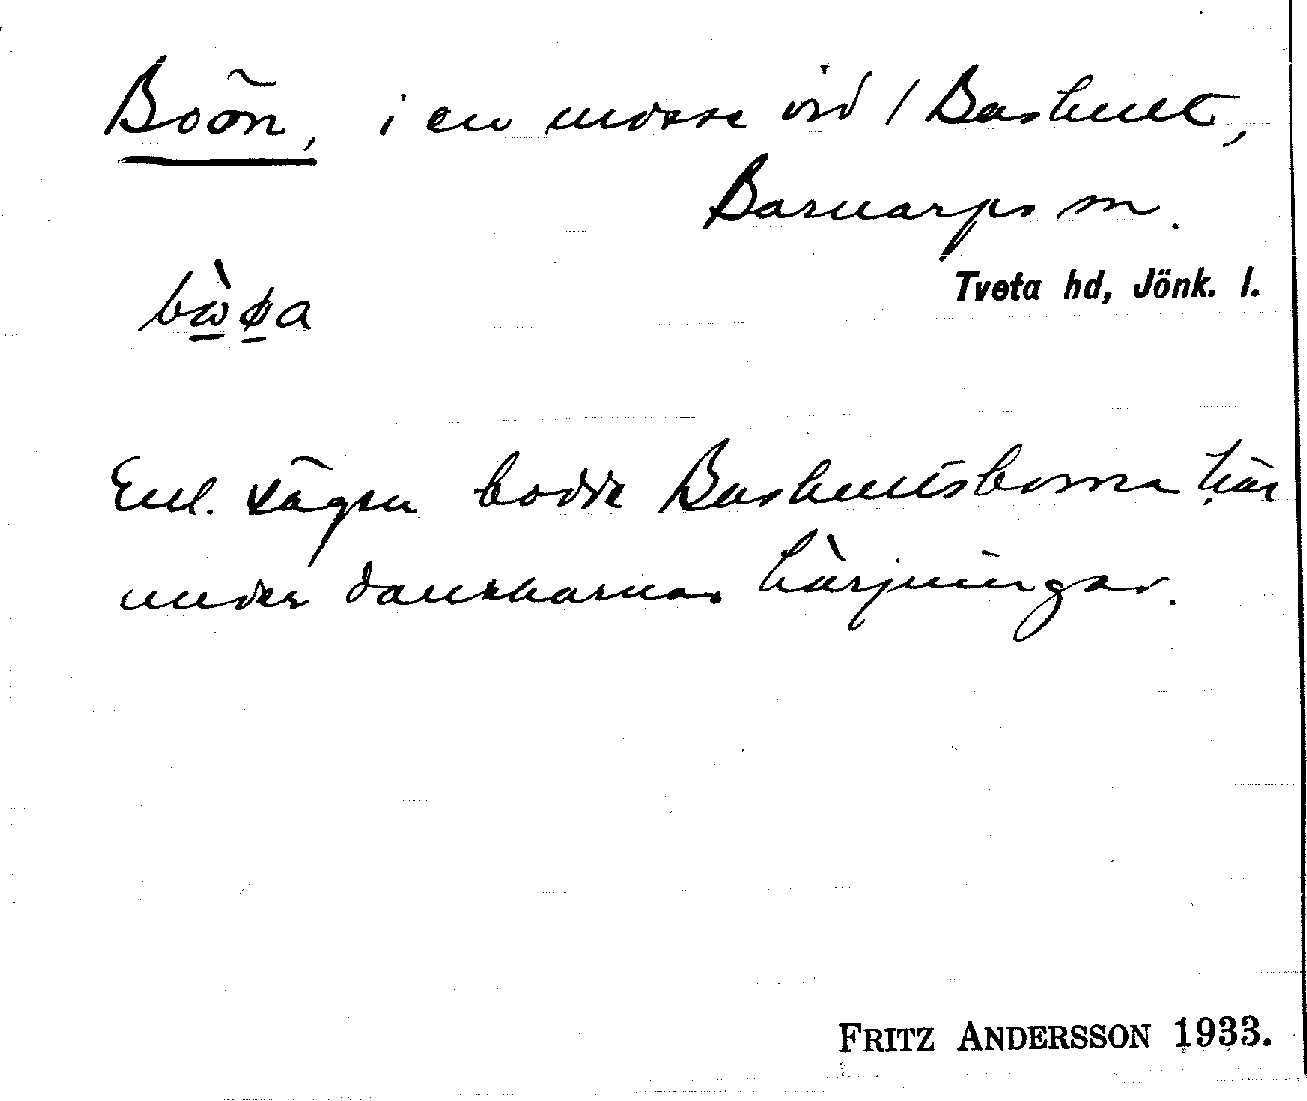 Boön, i en mosse vid / Bashult,
Barnarps sn.
Tveta hd, Jönk. l.
Enl. sägen bodde Bashultsborna här
under danskarnas härjningar.
FRITZ ANDERSSON 1933.